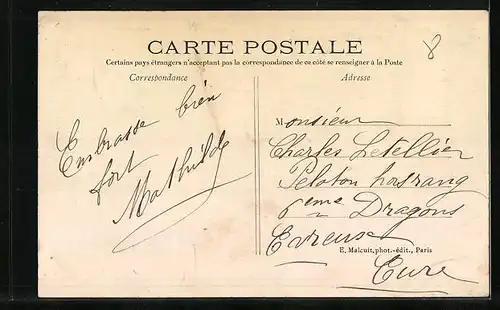 CARTE POSTALE
8
Certains pays étrangers n'acceptant pas la correspondance de ce côté se renseigner à la Poste
Correspondance
Adresse
Embrasse bien
fort
Mathilde
Monsieur
Charles Letellier
Peloton hors rang
6eme Dragons
Evreux
E. Malcuit, phot.-édit., Paris
Eure